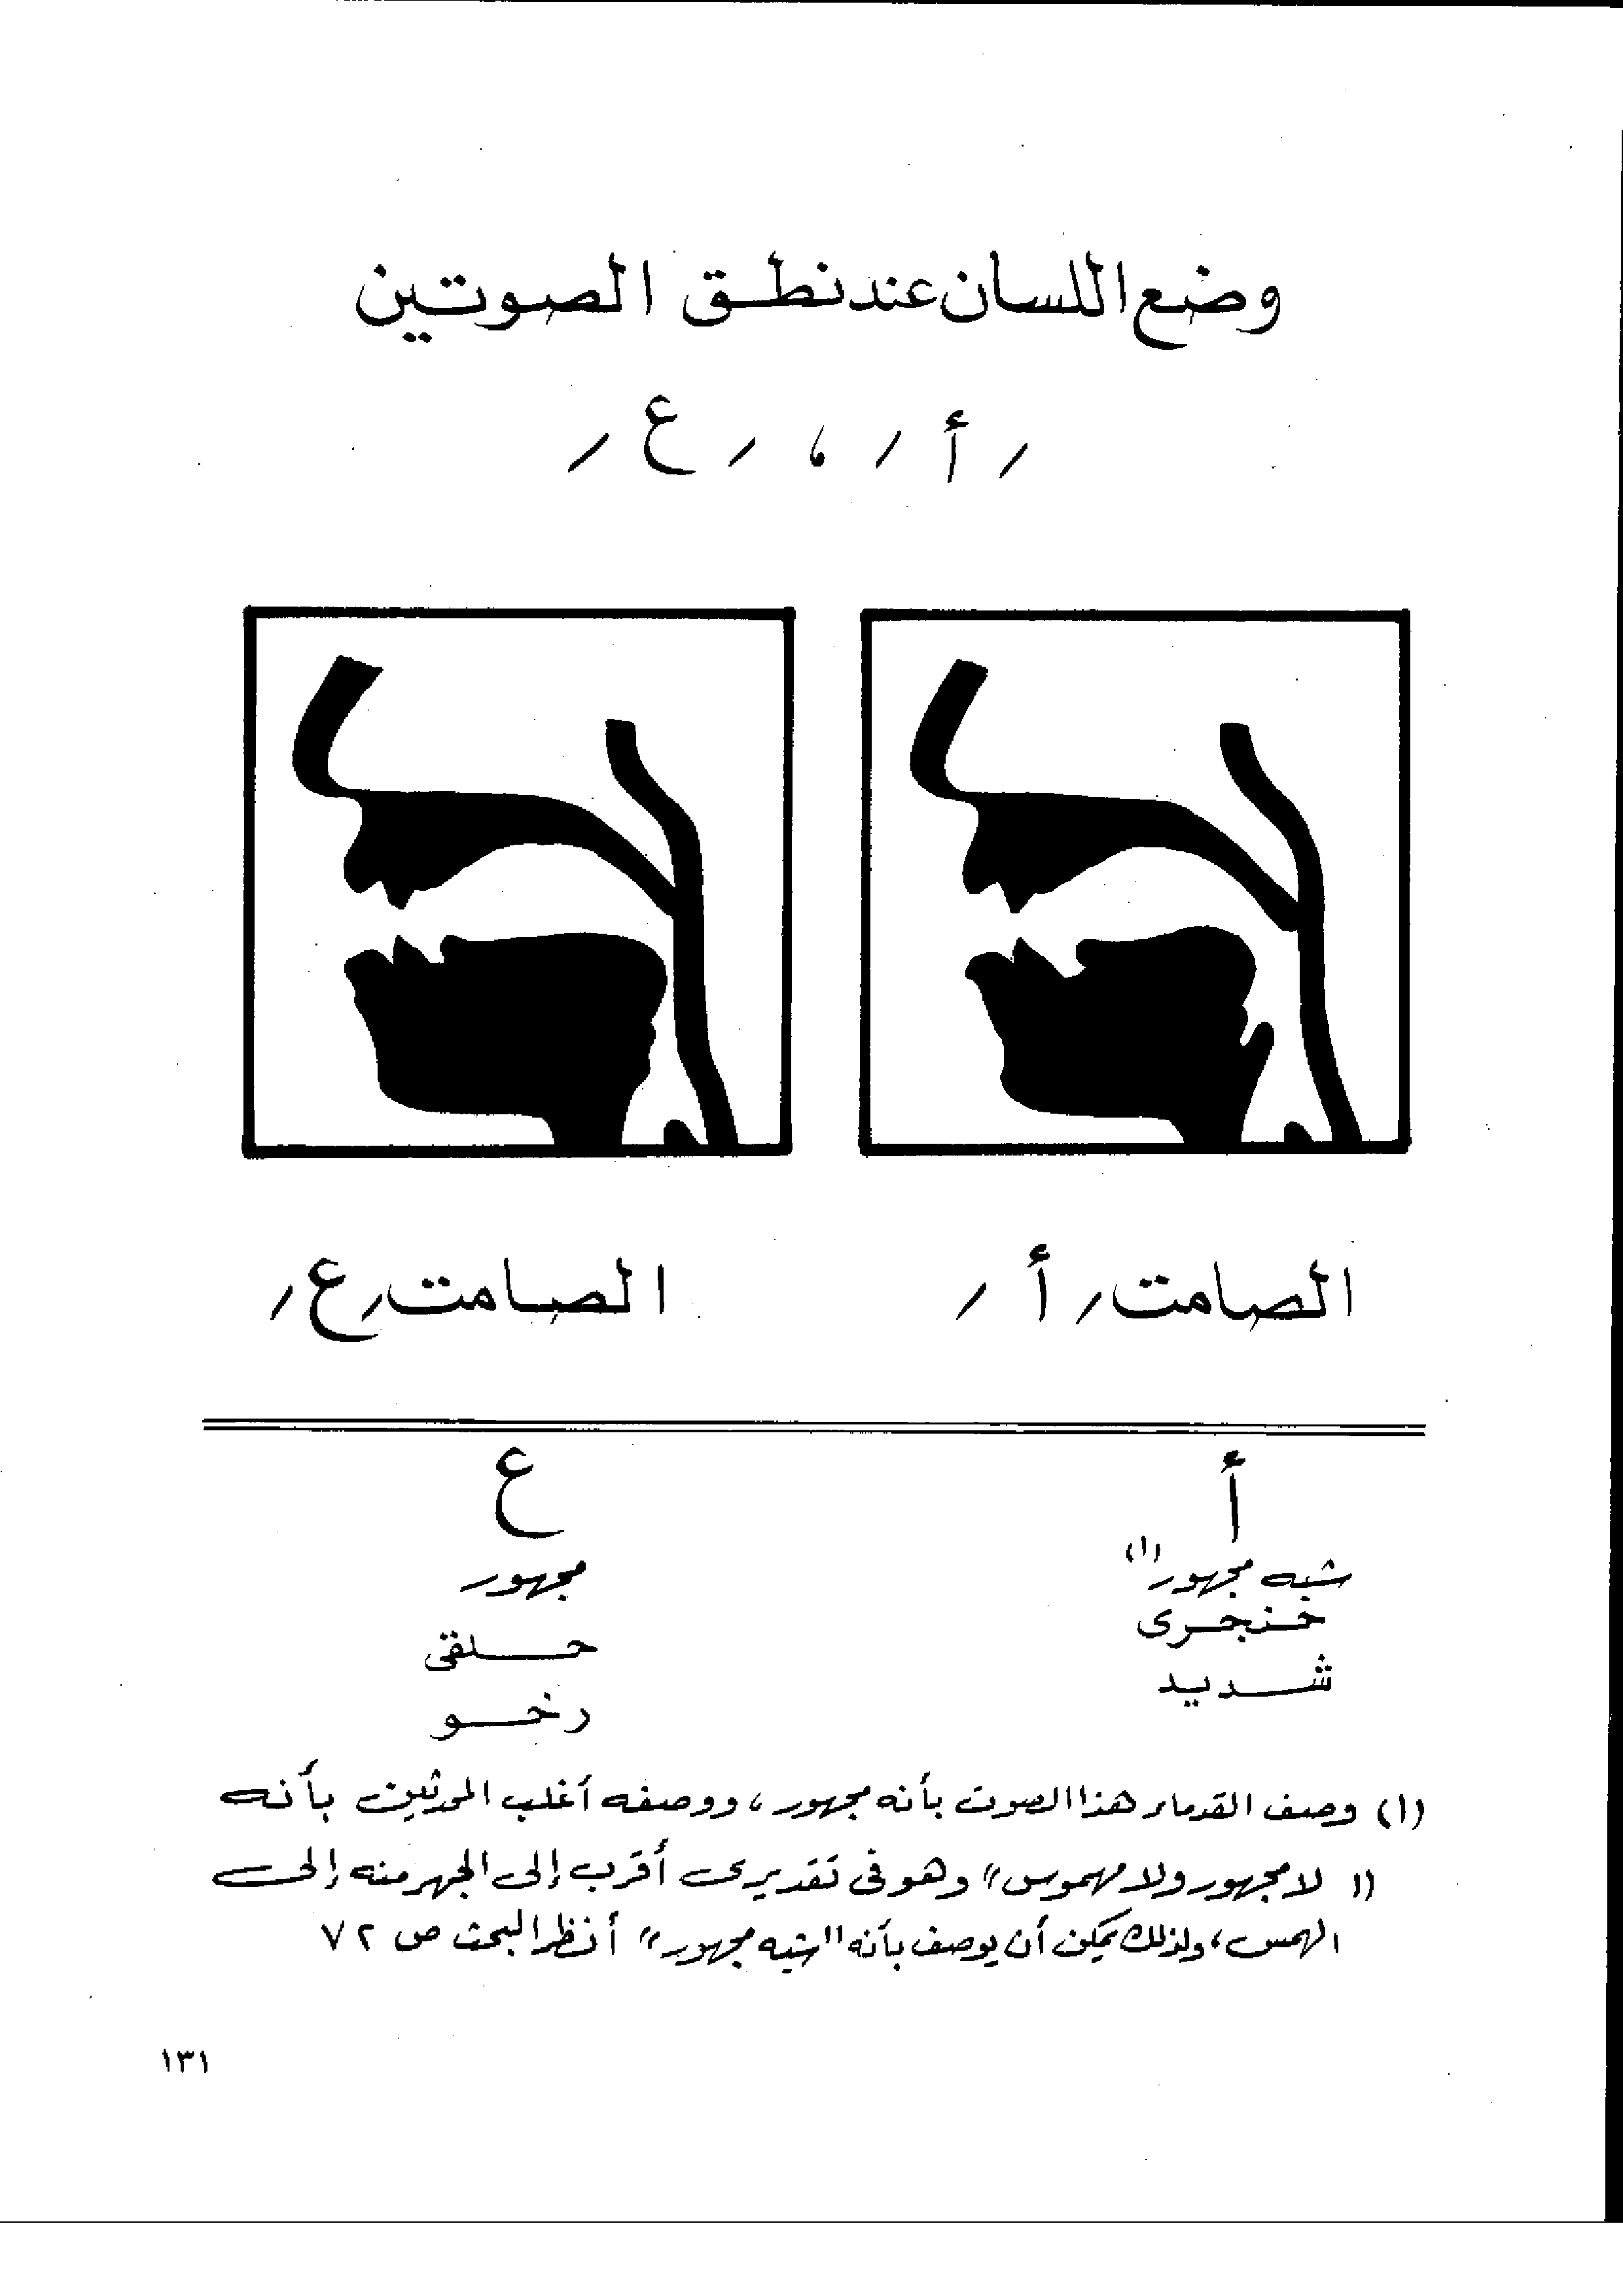 وضع اللسان عند نطق الصوتين
/ أ / ، / ع /
الصامت / أ /
الصامت / ع /
أ
شبه مجهور (١)
خنجرى
شديد
ع
مجهور
حلقى
رخو
(١) وصف القدماء هذا الصوت بأنه مجهور ، ووصفه أغلب المحدثين بأنه
(( لا مجهور ولا مهموس )) وهو فى تقديرى أقرب إلى الجهر منه إلى
الهمس ، ولذلك يمكن أن يوصف بأنه "شبه مجهور" أنظر البحث ص ٧٢
١٣١